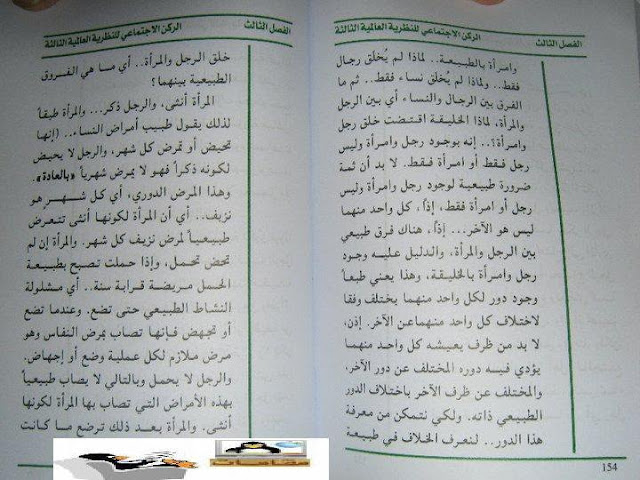 الفصل الثالث
الركن الاجتماعي للنظرية العالمية الثالثة
وامرأة بالطبيعة.. لماذا لم يُخلق رجال
فقط.. ولماذا لم يُخلق نساء فقط.. ثم ما
الفرق بين الرجال والنساء أي بين الرجل
والمرأة، لماذا الخليقة اقتضت خلق رجل
وامرأة؟.. إنه بوجود رجل وامرأة وليس
رجل فقط أو امرأة فقط. لا بد أن ثمة
ضرورة طبيعية لوجود رجل وامرأة وليس
رجل أو امرأة فقط، إذاً، كل واحد منهما
ليس هو الآخر... إذاً، هناك فرق طبيعي
بين الرجل والمرأة، والدليل عليه وجود
رجل وامرأة بالخليقة، وهذا يعني طبعاً
وجود دور لكل واحد منهما يختلف وفقا
لاختلاف كل واحد منهماعن الآخر. إذن،
لا بد من ظرف يعيشه كل واحد منهما
يؤدي فيه دوره المختلف عن دور الآخر،
والمختلف عن ظرف الآخر باختلاف الدور
الطبيعي ذاته. ولكي نتمكن من معرفة
هذا الدور.. لنعرف الخلاف في طبيعة
154
الفصل الثالث
الركن الاجتماعي للنظرية العالمية الثالثة
خلق الرجل والمرأة.. أي ما هي الفروق
الطبيعية بينهما؟
المرأة أنثى، والرجل ذكر... والمرأة طبقاً
لذلك يقول طبيب أمراض النساء.. (إنها
تحيض أو تمرض كل شهر، والرجل لا يحيض
لكونه ذكراً فهو لا يمرض شهرياً «بالعادة».
وهذا المرض الدوري، أي كل شهر هو
نزيف.. أي أن المرأة لكونها أنثى تتعرض
طبيعياً لمرض نزيف كل شهر. والمرأة إن لم
تحض تحمل، وإذا حملت تصبح بطبيعة
الحمل مريضة قرابة سنة.. أي مشلولة
النشاط الطبيعي حتى تضع. وعندما تضع
أو تجهض فإنها تصاب بمرض النفاس وهو
مرض ملازم لكل عملية وضع أو إجهاض.
والرجل لا يحمل وبالتالي لا يصاب طبيعياً
بهذه الأمراض التي تصاب بها المرأة لكونها
أنثى. والمرأة بعد ذلك ترضع ما كانت